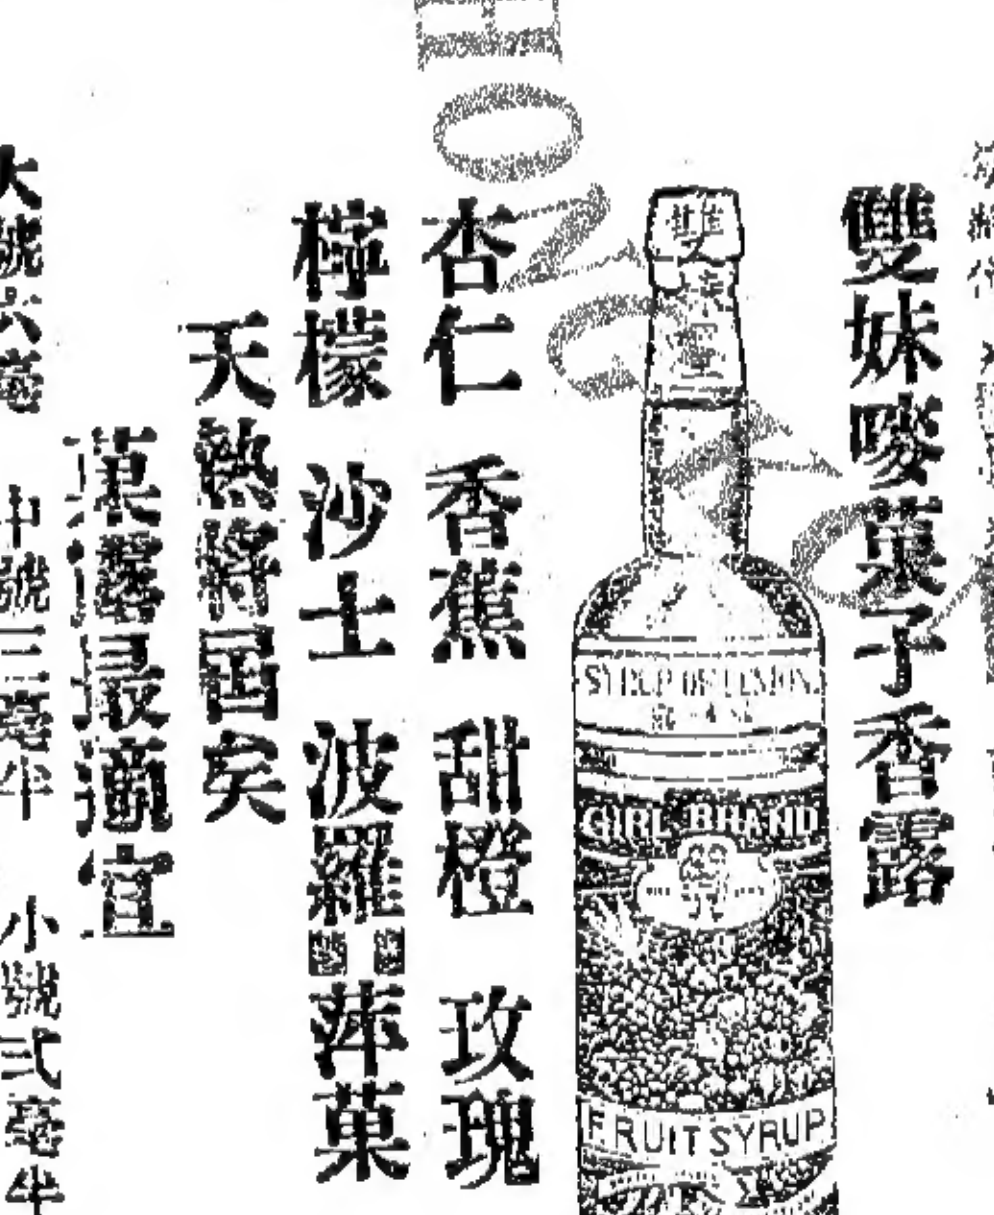 雙妹嘜菓子香露
雙
SYRUP OF LEMON
GIRL BRAND
FRUIT SYRUP
杏仁 香蕉 甜橙 玫瑰
檸檬 沙士 波羅 萍菓
天熱將囯矣
菓露最適宜
大號六毫 中號三毫半 小號弍毫半